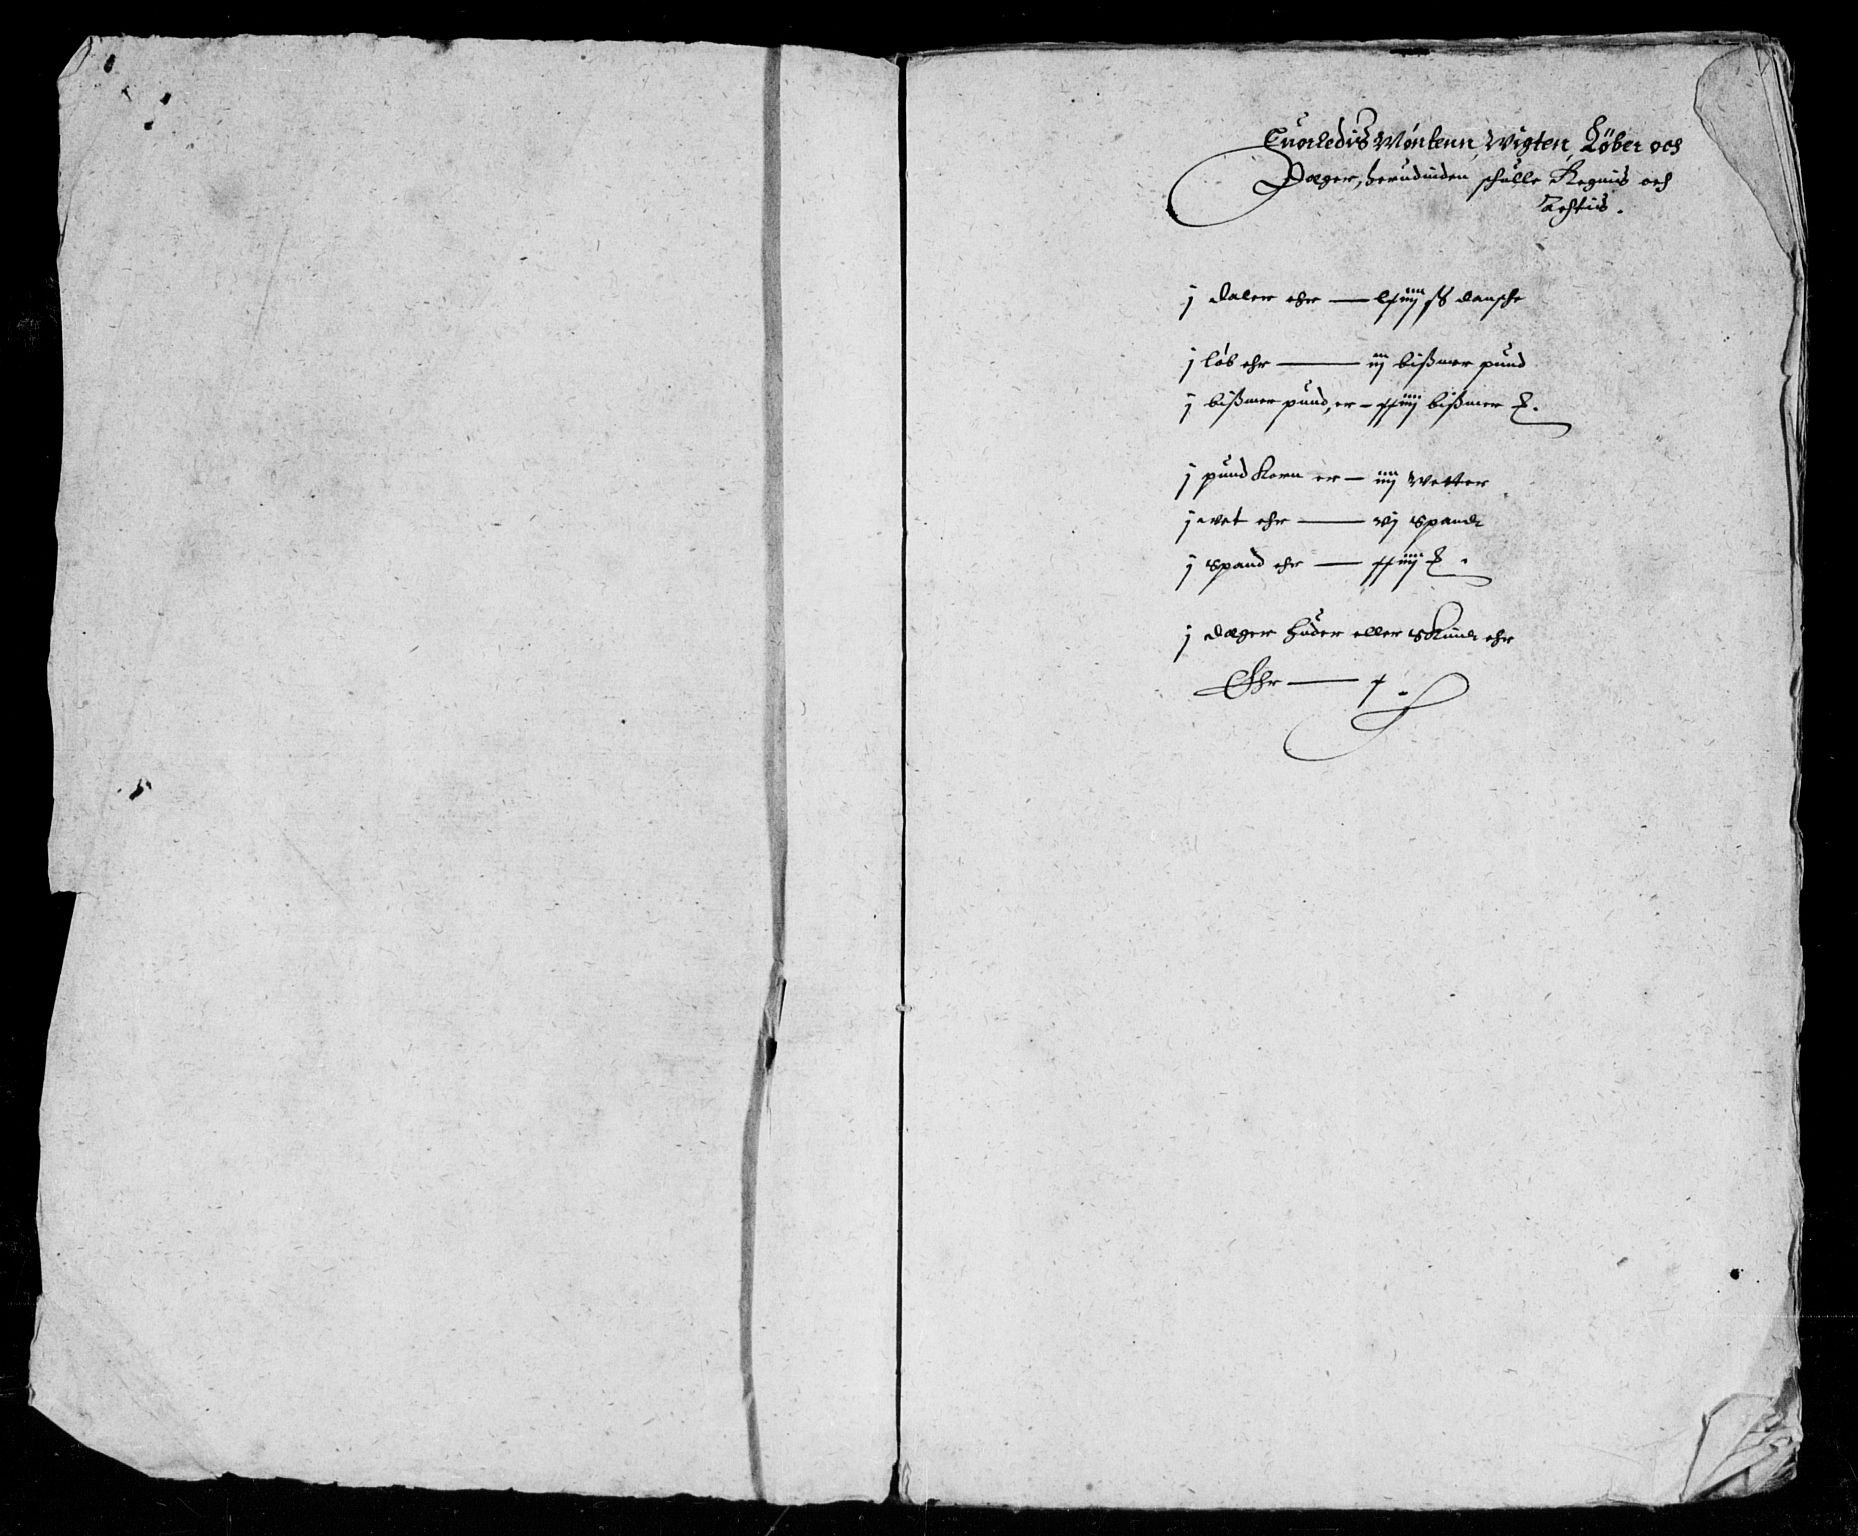 Cuorledis Møntenn, Wigten, Løber och
Dæger, herudinden schulle Regnis och
Achtis.
j daler ehr — lxiiij sß dansche
j løb ehr — iij bißmer pund
j bißmer pund, er — xxiiij bißmer ℔.
j pund Korn er — iiij Wetter
j wet ehr — vj Spand
j Spand ehr — xxiiij ℔.
j dæger huder eller Skind ehr
Ehr — x.